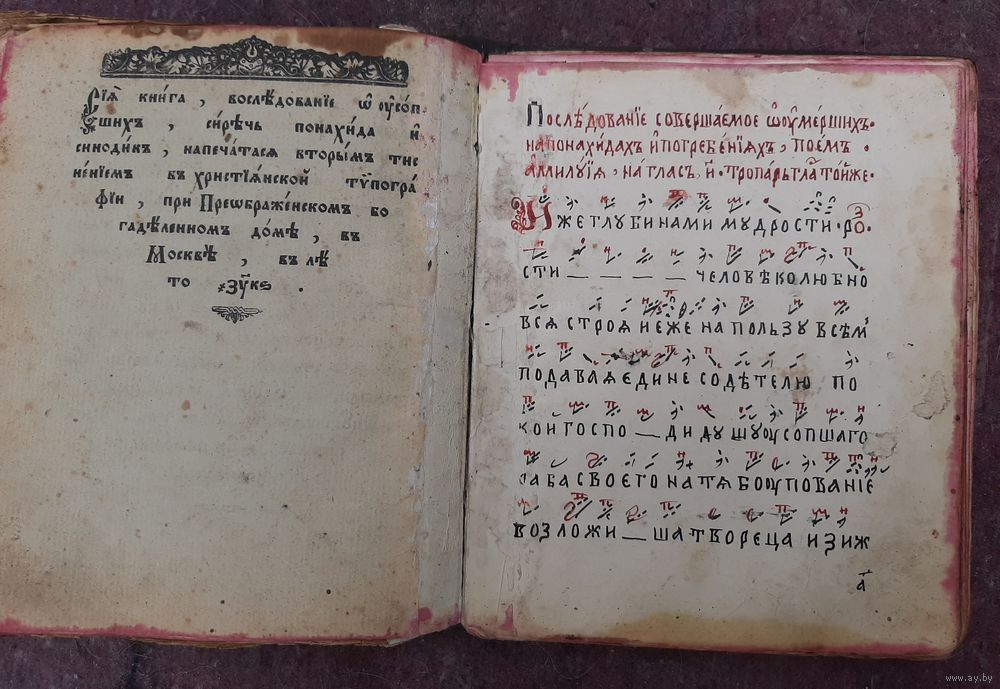 Сїѧ̀ кни́га , вослѣ́дованїе ѡ҆ ᲂу҆со́п
шихъ , си́рѣчь понахи́да и҆
синоди́къ , напеча́тасѧ вторы́мъ тис
не́нїемъ въ христїѧ́нской тѷпогра́
фїи , при Преѡбраже́нскомъ бо
гадѣ́ленномъ до́мѣ , въ
Москвѣ̀ , въ лѣ́
то .
Послѣ́дованїе соверша́емое ѡ҆ᲂу҆ме́ршихъ.
на понахи́дахъ и҆ погребе́нїѧхъ , пое́мъ .
аллилꙋ́їѧ , на гласъ , и҃ . тропарь гла той же .
Иже глꙋбинами мꙋдрости . ро .
сти — — — — человѣколюбно
всѧ строѧ и еже на пользꙋ всѣм
подаваѧ едине содѣтелю по
кои госпо — ди дꙋшꙋ ᲂусопшаго
раба своего на тѧ бо ᲂупованїе
возложи — ша творца и зиж
а҃
www.ay.by